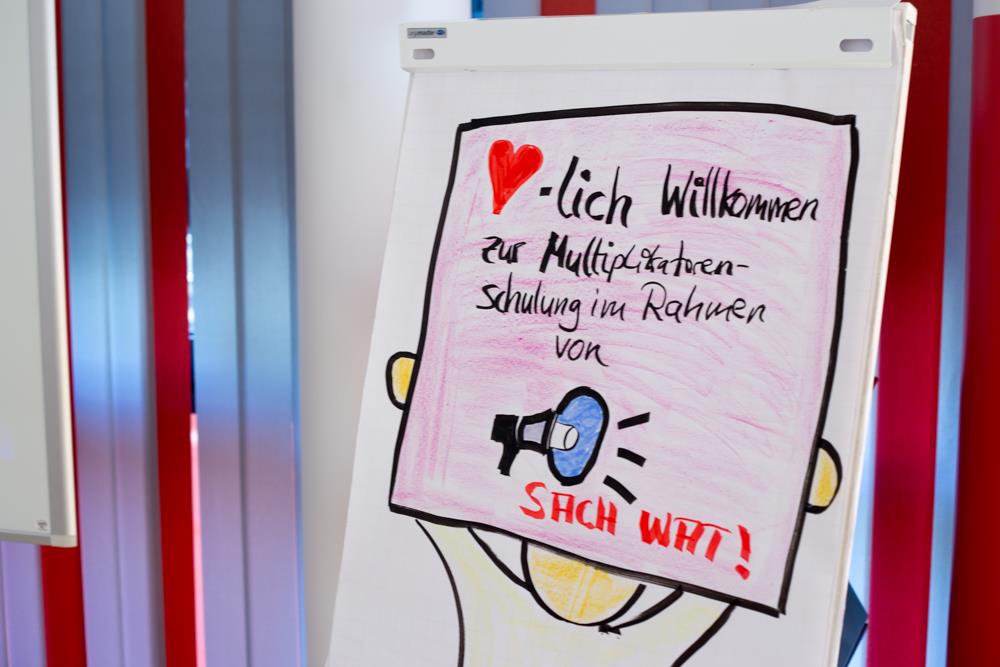 -lich Willkommen
zur Multiplikatoren-
schulung im Rahmen
von
SACH WAT!